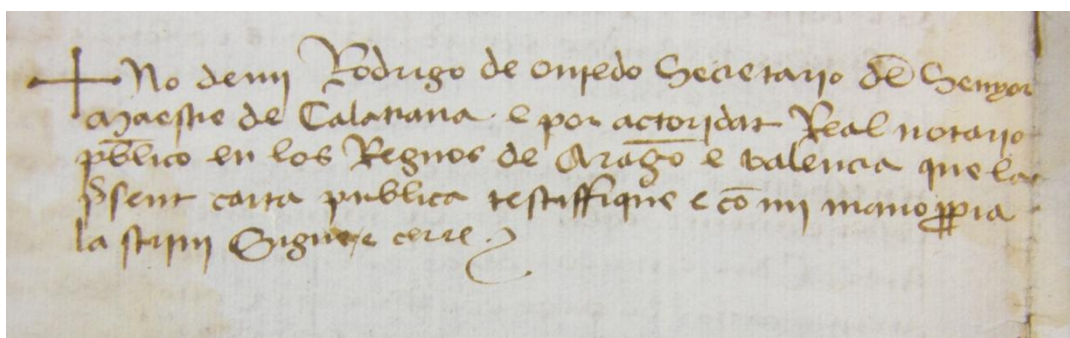 No de mi Rodrigo de ouiedo Secretario dē Senyor
Maestre de Calatraua e por actoridat Real notario
pūblico en los Regnos de Aragōn e valencia que la
p̄sent carta publica testiffique e cō mi mano ꝓpia
la scriui Signe e cerre